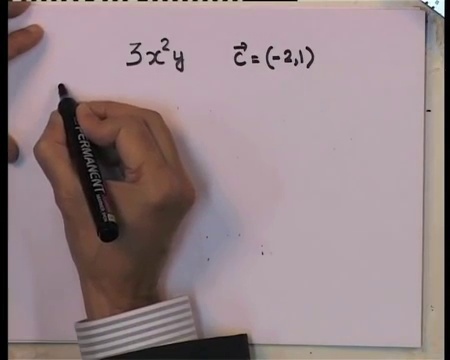 3x²y    c⃗ = (-2,1)
PERMANENT